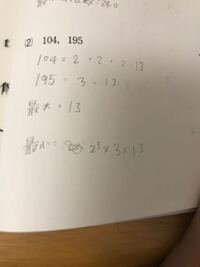 (2) 104, 195
104 = 2 · 2 · 2 · 13
195 = 3 · 13
最大 = 13
最小 = 2³ × 3 × 13